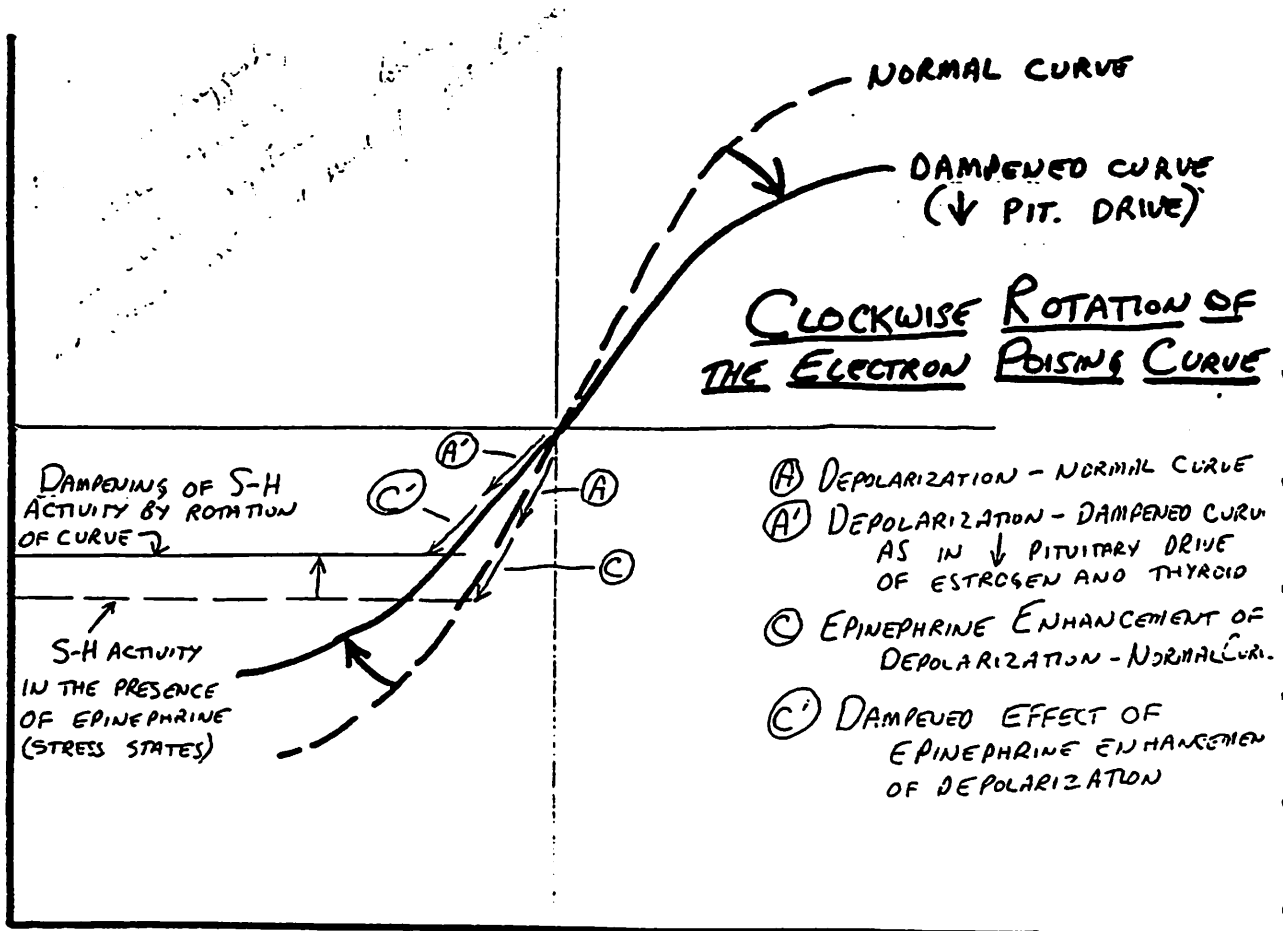 NORMAL CURVE
DAMPENED CURVE
(↓ PIT. DRIVE)
CLOCKWISE ROTATION OF
THE ELECTRON POISING CURVE
A'
A
C'
C
DAMPENING OF S-H
ACTIVITY BY ROTATION
OF CURVE
S-H ACTIVITY
IN THE PRESENCE
OF EPINEPHRINE
(STRESS STATES)
A DEPOLARIZATION - NORMAL CURVE
A' DEPOLARIZATION - DAMPENED CURV
AS IN ↓ PITUITARY DRIVE
OF ESTROGEN AND THYROID
C EPINEPHRINE ENHANCEMENT OF
DEPOLARIZATION - NORMAL CUR
C' DAMPENED EFFECT OF
EPINEPHRINE ENHANCEMEN
OF DEPOLARIZATION